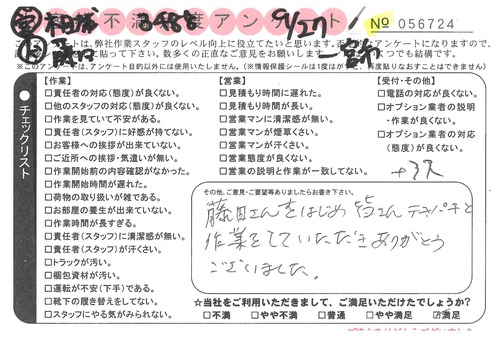 不満度アンケート
9/27
No 056724
アンケートは、弊社作業スタッフのレベル向上に役立てたいと思います。
※このアンケートは、アンケート目的以外には使用いたしません。(※情報保護シールは1度はがすと、再度貼りなおすことはできません)
チェックリスト
【作業】
□責任者の対応(態度)が良くない。
□他のスタッフの対応(態度)が良くない。
□作業を見ていて不安がある。
□責任者(スタッフ)に好感が持てない。
□お客様への挨拶が出来ていない。
□ご近所への挨拶・気遣いが無い。
□作業開始前の内容確認がなかった。
□作業開始時間が遅れた。
□荷物の取り扱いが雑である。
□お部屋の養生が出来ていない。
□作業時間が長すぎる。
□責任者(スタッフ)に清潔感が無い。
□責任者(スタッフ)が汗くさい。
□トラックが汚い。
□梱包資材が汚い。
□運転が不安(下手)である。
□靴下の履き替えをしてない。
□スタッフにやる気がみられない。
【営業】
□見積もり時間に遅れた。
□見積もり時間が長い。
□営業マンに清潔感が無い。
□営業マンが煙草くさい。
□営業マンが汗くさい。
□営業態度が良くない。
□営業の説明と作業が一致してない。
【受付・その他】
□電話の対応が良くない。
□オプション業者の説明
・作業が良くない。
□オプション業者の対応
(態度)が良くない。
その他、ご意見・ご要望等ありましたらお書き下さい。
藤田さんをはじめ 皆さん テキパキと
作業をしていただきありがとう
ございました。
☆当社をご利用いただきまして、ご満足いただけたでしょうか?
□不満 □やや不満 □普通 □やや満足 ☑満足